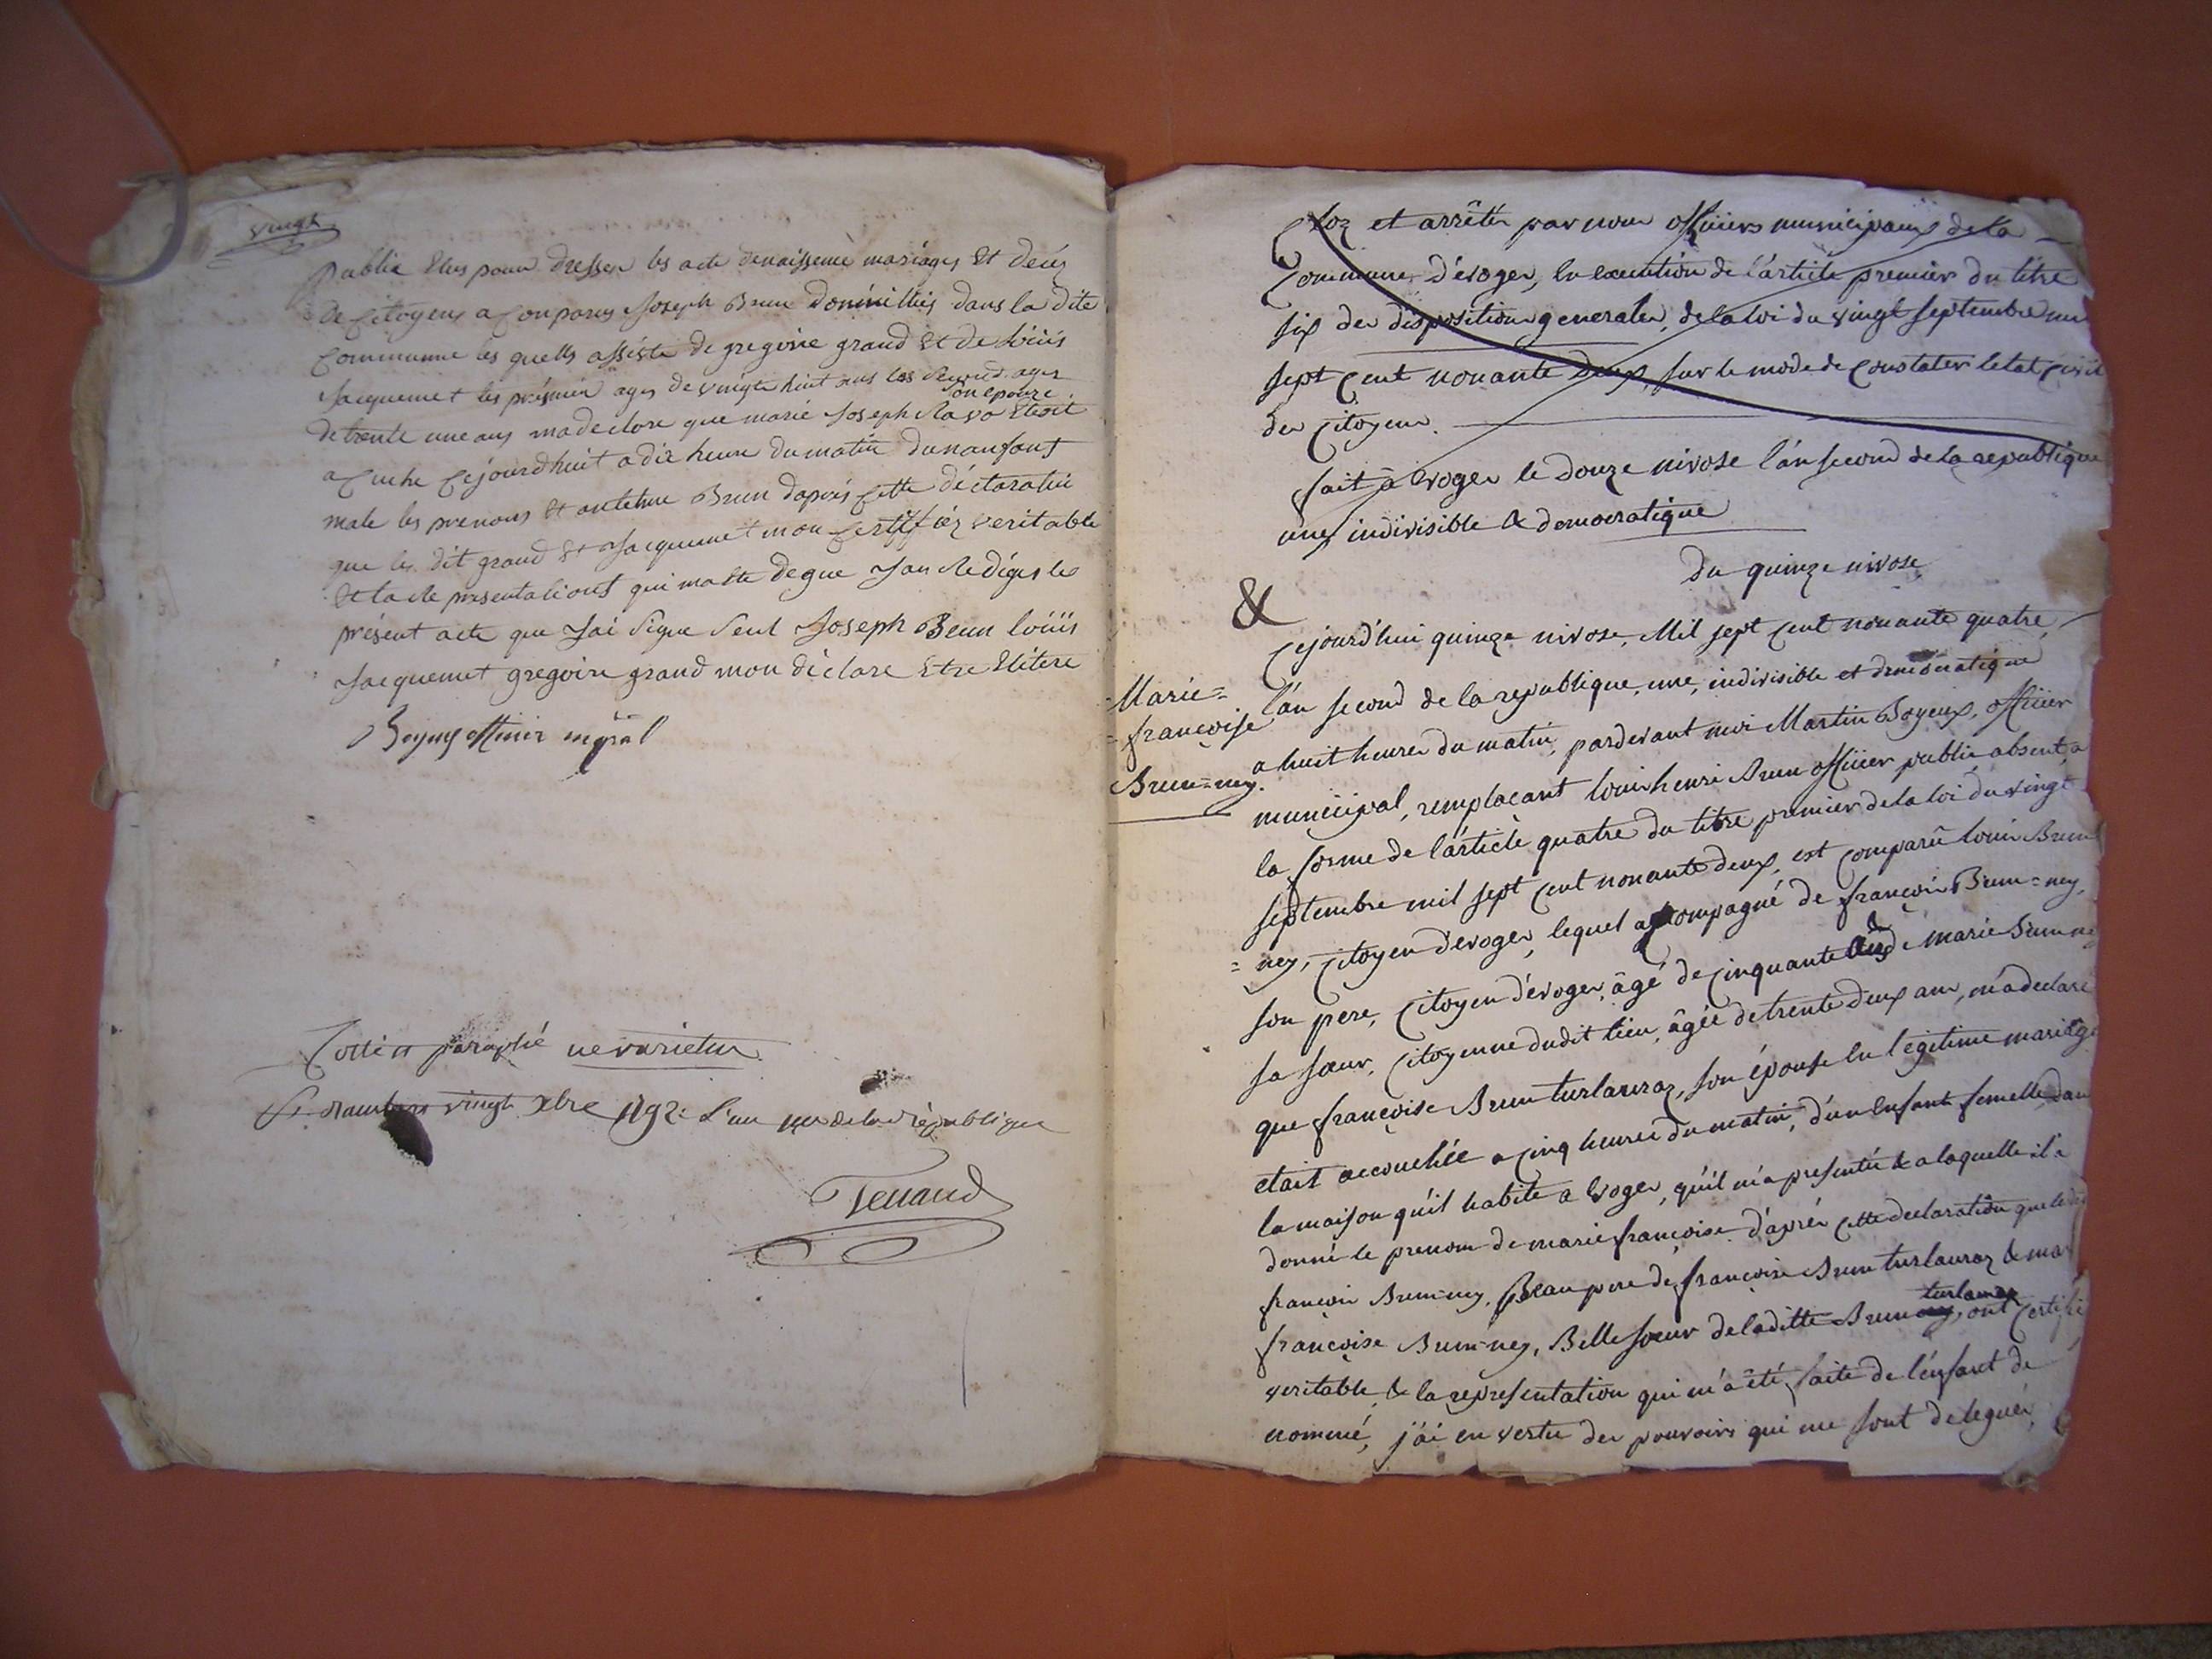 vingt
Public Elus pour dresser les acte denaissence mariages Et deces
de Citoyens a Conparus Joseph Brun Domicillies dans la dite
Communne les quells assiste de gregoire grand Et de loüis
Jacquemet les présmier ages de vuingt huit ans les Segond ages
de trente une ans madeclare que marie Joseph Ravo Etoit
son epouze
acuche Cejourdhuit a dix heure dumatin dunanfant
male les prenous Et antoine Brun daprés Cette déclaratin
que les dit grand Et Jacquemet mon Certiffiéz veritable
Et la Re presentations qui ma Ete degue Jau Rediges le
présent acte que Jai Signe Seul Joseph Beun loüis
Jacquemet gregoire grand mon déclare Etre Elitere
Boyeux officier mpal
Cotté et paraphé ne varietur
vingt xbre 1792 L'an 1er de la république
Tenaud
Cloz et arrêtér par nour officiers municipaux de la
Commune d'évoger, En execution de l'article premier du titre
six der disposition generaler, de la loi du vingt septembre mil
sept Cent nonante deux, sur le mode de Constater letat Civil
der Citoyenr.
fait à Evoger le douze nivose l'an second de la republique
une, indivisible & democratique
Du quinze nivose
&
Cejourd'hui quinze nivose, Mil sept Cent nonante quatre,
Marie=
=françoise
Brun=ney.
l'an second de la republique, une, indivisible et democratique
a huit heurer du matin, pardevant moi Martin Boyeux, officier
municipal, remplaçant louir henri Brun officier public absent, a
la forme de l'article quatre du titre premier de la loi du vingt
septembre mil sept Cent nonante deux, est Comparû louir Brun
=ney, Citoyen d'evoger, lequel accompagné de françoir Brun=ney,
son pere, Citoyen d'évoger, âgé de Cinquante & de marie Brun ney
sa sœur, Citoyenne dudit lieu, âgée de trente deux anr, m'a declaré
que françoise Brun turlauraz, son épouse En légitime mariage
etait accouchée a Cinq heurer du matin, d'un Enfant femelle dan
la maison qu'il habite a Evoger, qu'il m'a presentée & a laquelle il a
donné le prenom de marie françoise. d'aprér Cette declaration que ledit
françoir Brun=ney, Beau pere de françoise Brun turlauraz & mar
françoise Brun=ney, Belle sœur de laditte Brun turlauraz, ont Certifié
veritable, & la representation qui m'a été faite de l'enfant de
nommé, j'ai en vertu der pouvoirs qui me sont deleguér,